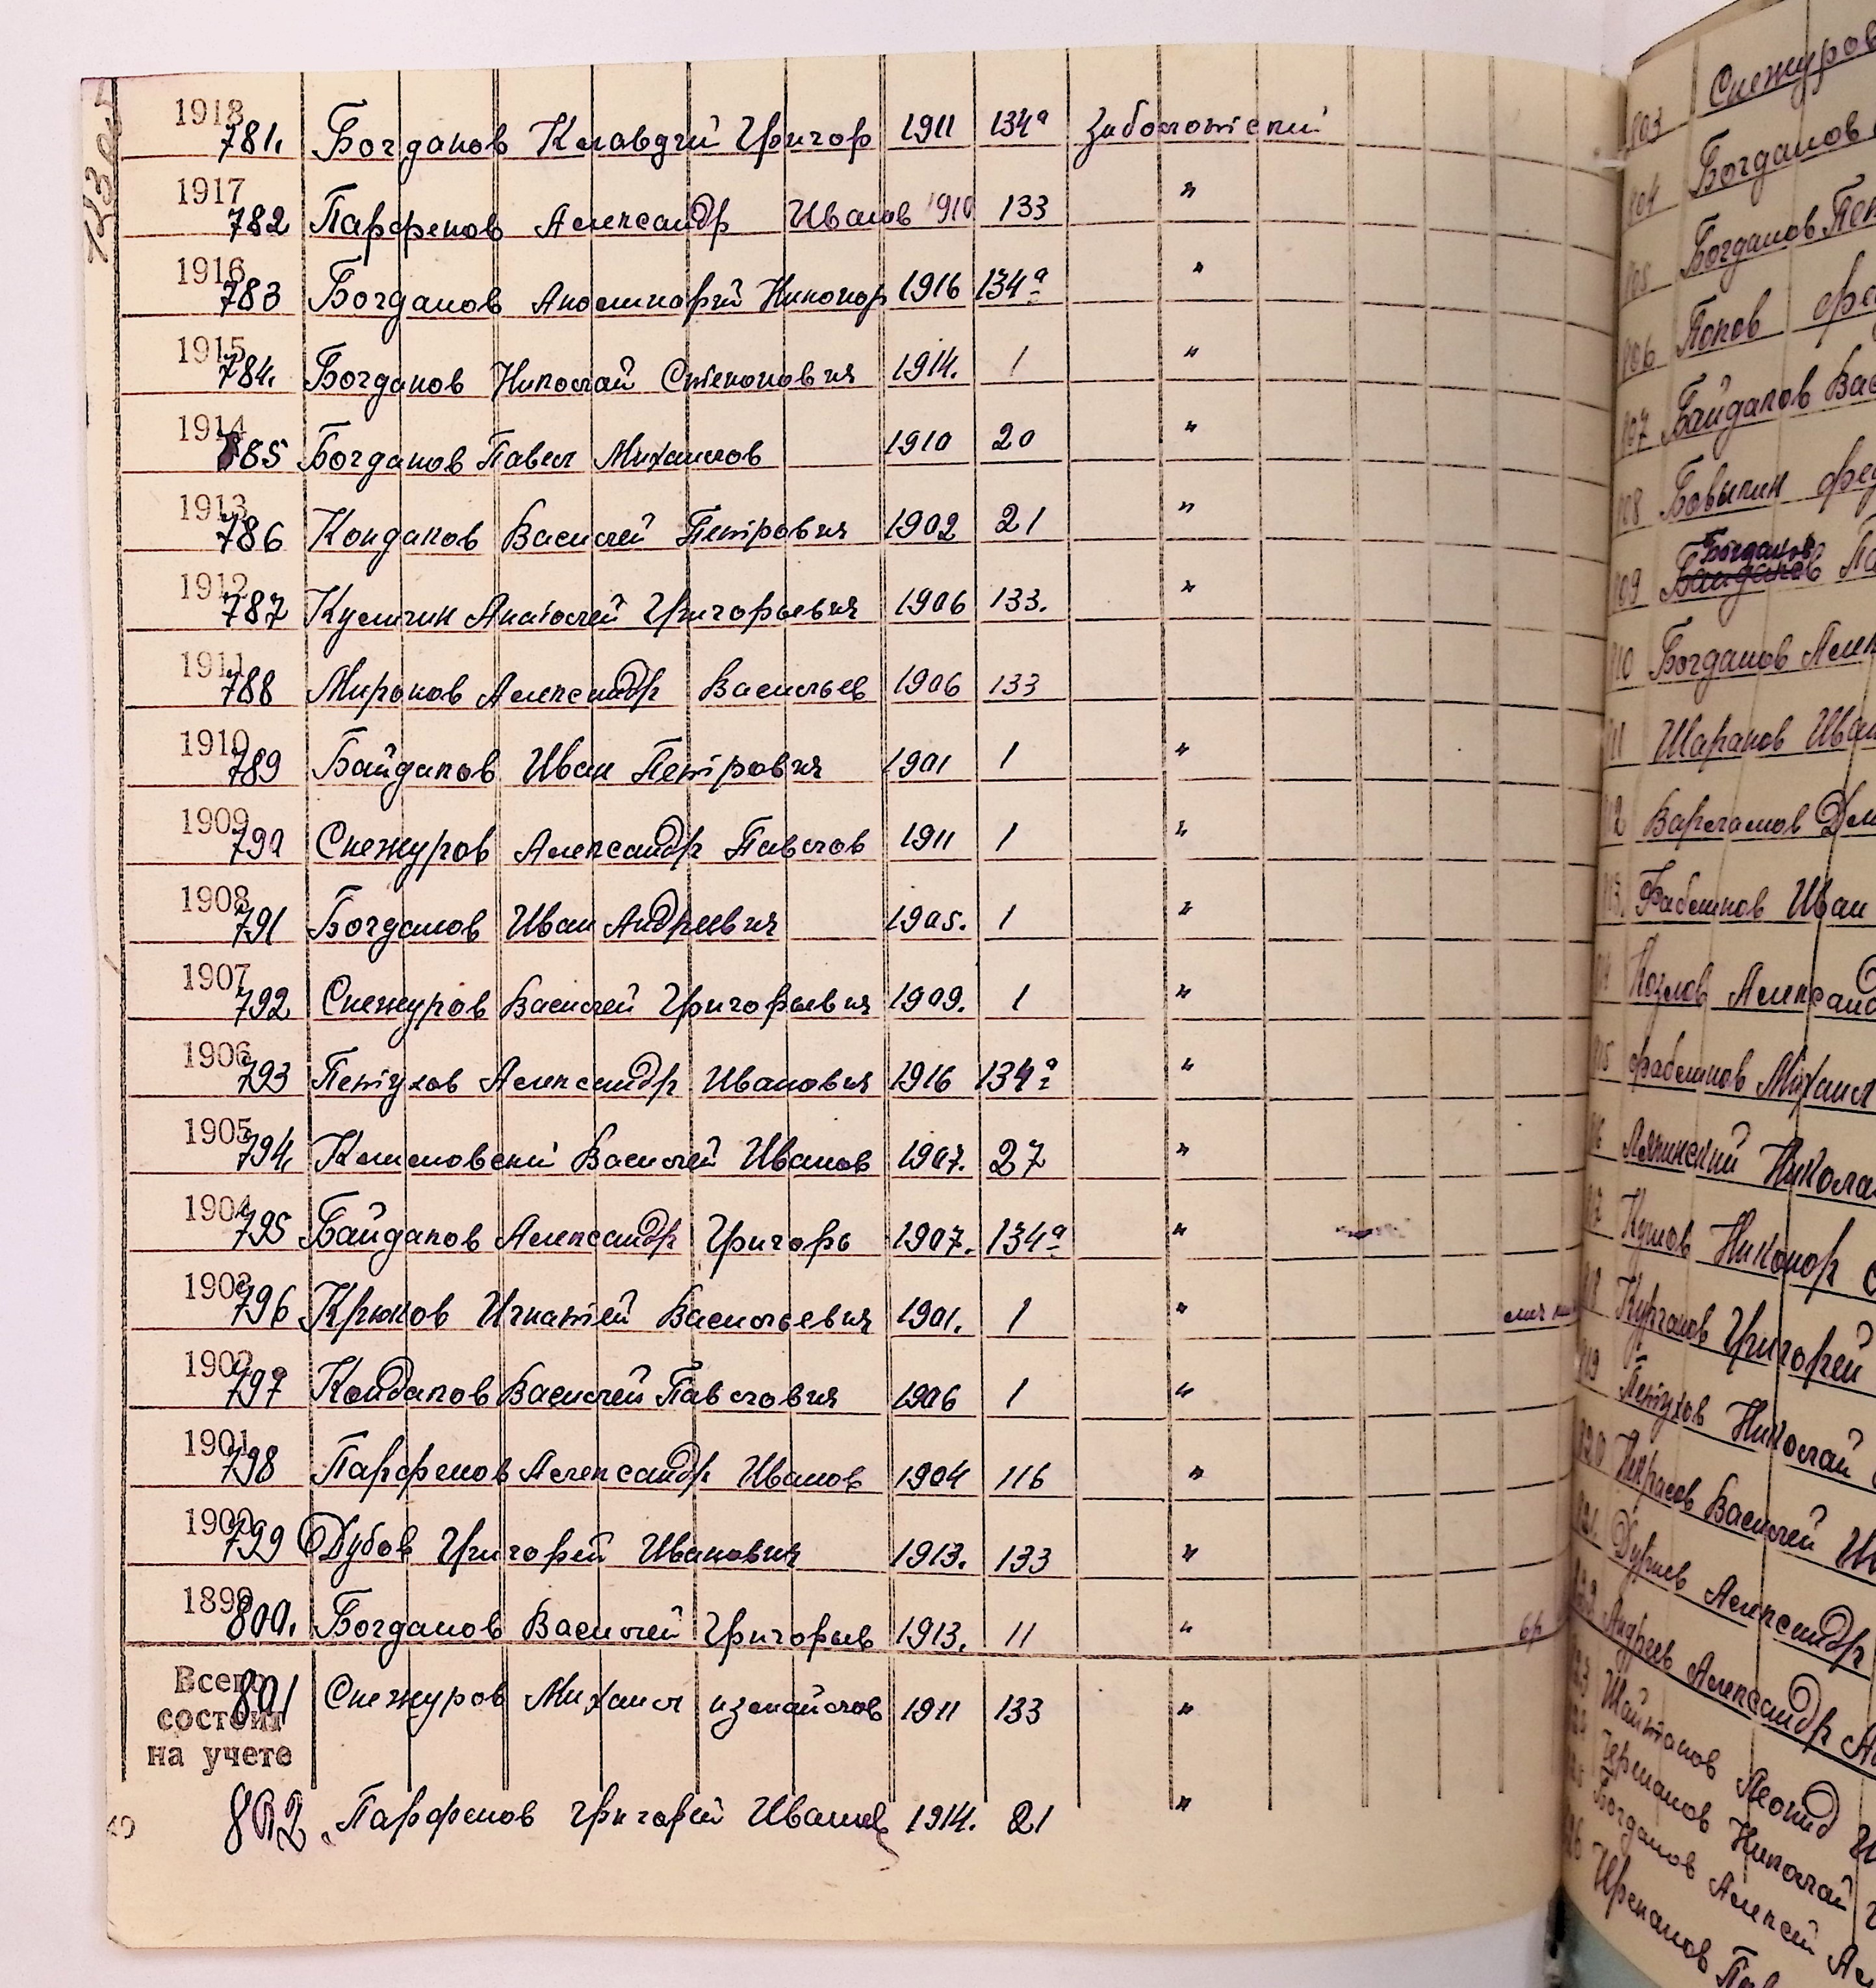 1918 781. Богданов Клавдий Григор 1911 134а Заболотский
1917 782 Парфенов Александр Иванов 1910 133 "
1916 783 Богданов Аполинарий Никонор 1916 134а "
1915 784. Богданов Николай Степанович 1914. 1 "
1914 785 Богданов Павел Михайлов 1910 20 "
1913 786 Кондаков Василий Петрович 1902 21 "
1912 787 Кулигин Анатолий Григорьевич 1906 133. "
1911 788 Миронов Александр Васильев 1906 133
1910 789 Байдаков Иван Петрович 1901 1 "
1909 790 Снежуров Александр Павлов 1911 1 "
1908 791 Богданов Иван Андреевич 1905. 1 "
1907 792 Снежуров Василий Григорьевич 1909. 1 "
1906 793 Петухов Александр Иванович 1916 134а "
1905 794. Климовский Василий Иванов 1907. 27 "
1904 795 Байдаков Александр Григорь 1907. 134а "
1903 796 Крюков Игнатий Васильевич 1901. 1 "
1902 797 Кондаков Василий Павлович 1906 1 "
1901 798 Парфенов Александр Иванов 1904 116 "
1900 799 Дубов Григорий Иванович 1913. 133 "
1899 800. Богданов Василий Григорьев 1913. 11 "
Всего
801 Снежуров Михаил Измайлов 1911 133 "
состоит
на учете
802 Парфенов Григорий Иванов 1914. 21 "
803 Снежуров
804 Богданов
805 Богданов
806 Попов
807 Байдаков Вас
808 Бовыкин
Богданов
809 Байдаков
810 Богданов
811 Шарапов Иван
812 Варламов
813.
Иван
814 Козлов
815
Михаил
816 Ляпинский Николай
817
Никонор
818 Курганов Григорей
819 Петухов Николай
820 Некрасов Василей
821.
Александр
822 Андреев Александр
823
Леонид
824
Николай
825 Богданов Алексей
826